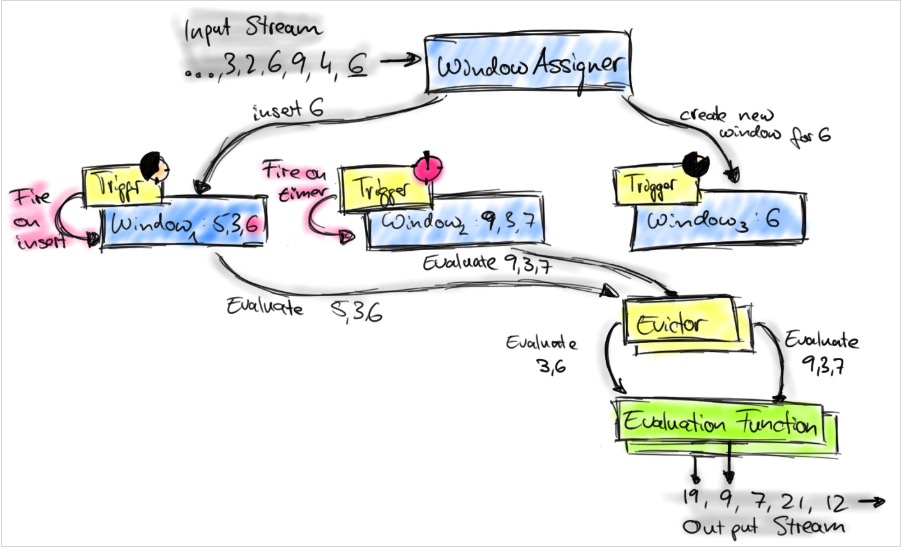 Input Stream
...,3,2,6,9,4,6
Window Assigner
insert 6
create new
window for 6
Trigger
Fire
on
insert
Window1: 5,3,6
Fire on
timer
Trigger
Window2: 9,3,7
Trigger
Window3: 6
Evaluate 9,3,7
Evaluate 5,3,6
Evictor
Evaluate
3,6
Evaluate
9,3,7
Evaluation Function
19, 9, 7, 21, 12
Output Stream